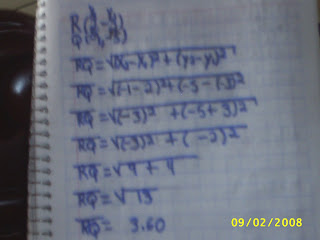 RQ = √(x₂-x₁)²+(y₂-y₁)²
RQ = √(-1-2)²+(-5-(-3))²
RQ = √(-3)² +(-5+3)²
RQ = √(-3)² + (-2)²
RQ = √9 + 4
RQ = √13
RQ = 3.60
09/02/2008